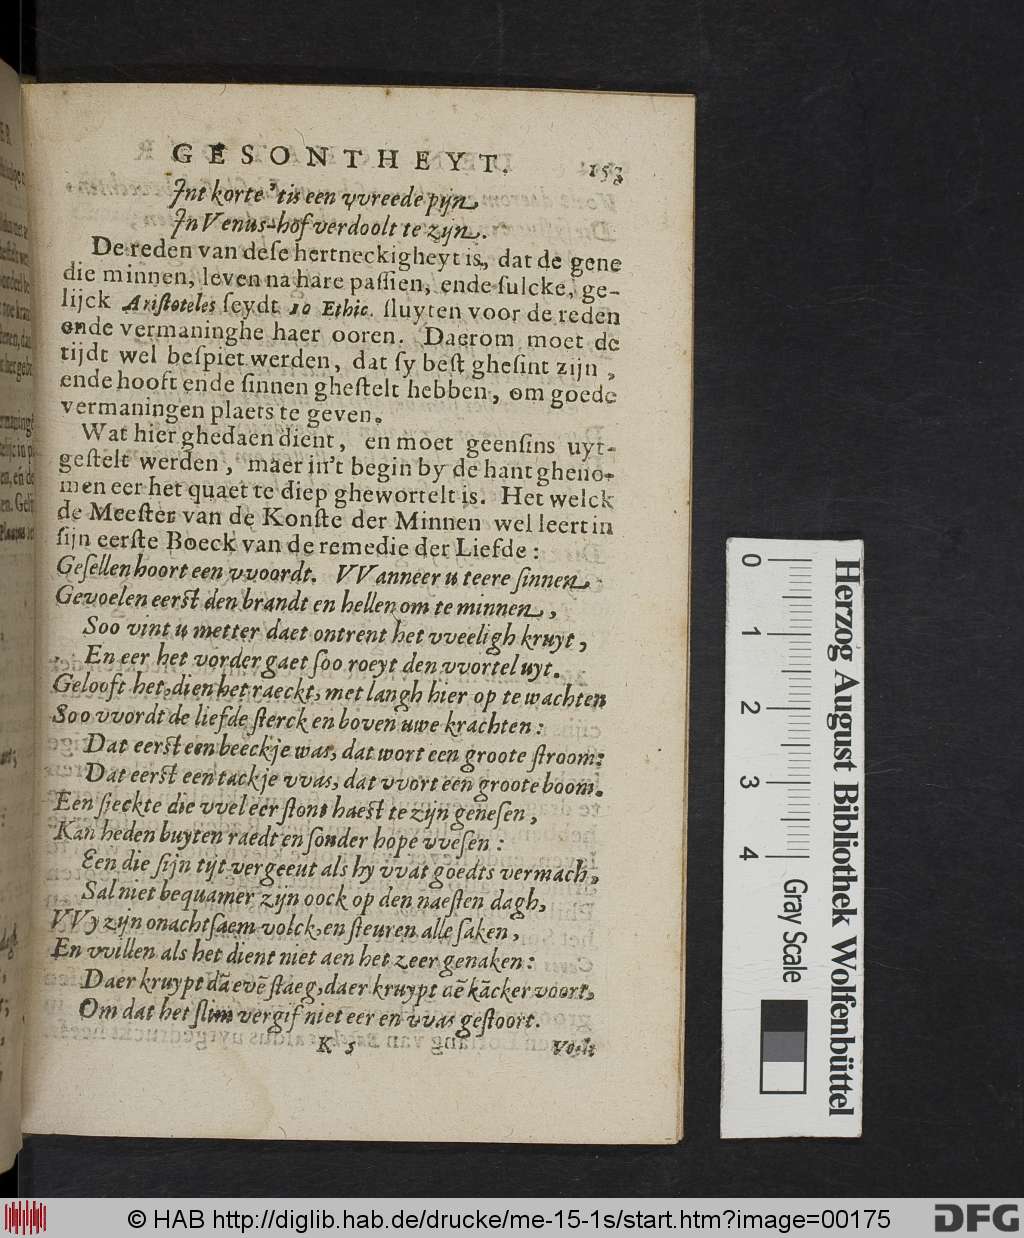 GESONTHEYT. 153
Jnt korte 'tis een vvreede pijn,
Jn Venus-hof verdoolt te zijn.
De reden van dese hertneckigheyt is, dat de gene
die minnen, leven na hare passien, ende sulcke, ge-
lijck Aristoteles seydt 10 Ethic. sluyten voor de reden
ende vermaninghe haer ooren. Daerom moet de
tijdt wel bespiet werden, dat sy best ghesint zijn,
ende hooft ende sinnen ghestelt hebben, om goede
vermaningen plaets te geven.
Wat hier ghedaen dient, en moet geensins uyt-
gestelt werden, maer in't begin by de hant gheno-
men eer het quaet te diep ghewortelt is. Het welck
de Meester van de Konste der Minnen wel leert in
sijn eerste Boeck van de remedie der Liefde:
Gesellen hoort een vvoordt. VVanneer u teere sinnen
Gevoelen eerst den brandt en hellen om te minnen,
Soo vint u metter daet ontrent het vveeligh kruyt,
En eer het vorder gaet soo roeyt den vvortel uyt.
Gelooft het, dien het raeckt, met langh hier op te wachten
Soo vvordt de liefde sterck en boven uwe krachten:
Dat eerst een beeckje was, dat wort een groote stroom:
Dat eerst een tackje vvas, dat vvort een groote boom.
Een sieckte die vvel eer stont haest te zijn genesen,
Kan heden buyten raedt en sonder hope vvesen:
Een die sijn tijt vergeeut als hy vvat goedts vermach,
Sal niet bequamer zijn oock op den naesten dagh,
VVy zijn onachtsaem volck, en steuren alle saken,
En vvillen als het dient niet aen het zeer genaken:
Daer kruypt dā evē staeg, daer kruypt dē kācker voort,
Om dat het slim vergif niet eer en vvas gestoort.
K 5
Herzog August Bibliothek Wolfenbüttel
0 1 2 3 4
Gray Scale
© HAB http://diglib.hab.de/drucke/me-15-1s/start.htm?image=00175
DFG